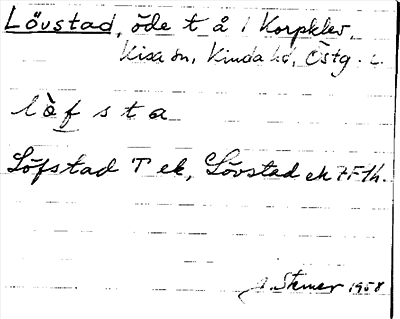 Lövstad, öde t å / Korpklev,
Kisa sn, Kinda hd, Östg. l.
lö̀f s t a
Löfstad T ek, Lövstad ek 7F1h.
J. Stemer 1958